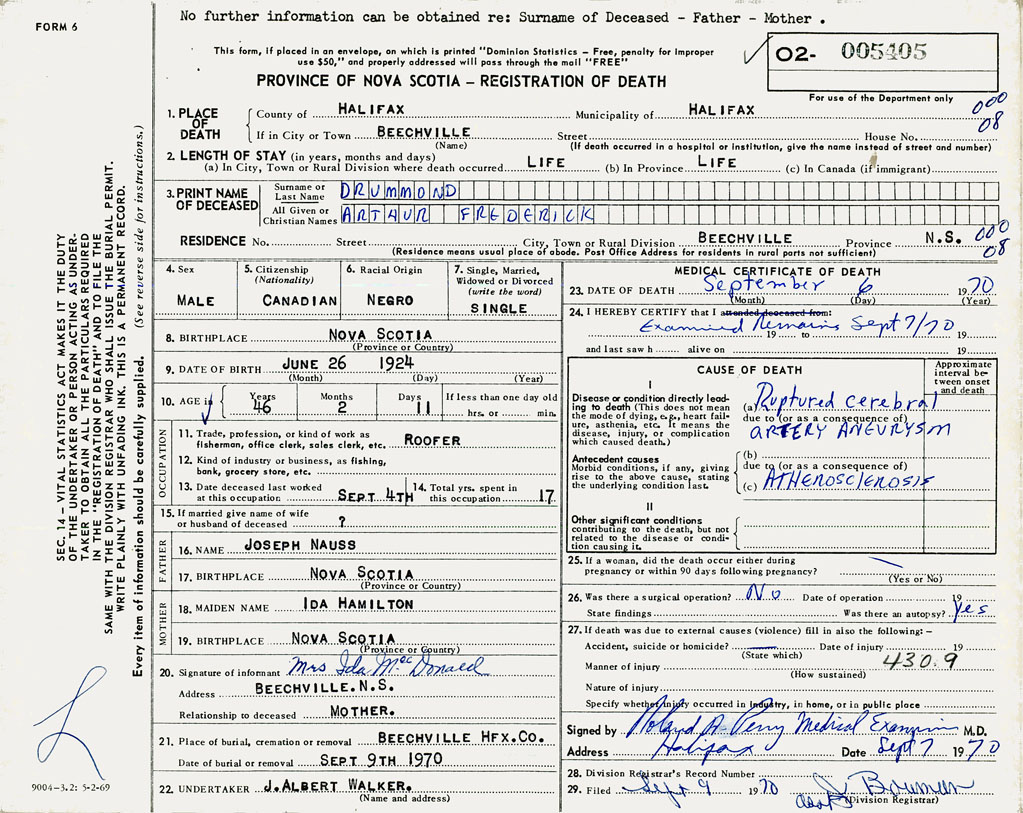 No further information can be obtained re: Surname of Deceased - Father - Mother .
FORM 6
This form, if placed in an envelope, on which is printed "Dominion Statistics – Free, penalty for improper
use $50," and properly addressed will pass through the mail "FREE"
O2- 005405
PROVINCE OF NOVA SCOTIA – REGISTRATION OF DEATH
For use of the Department only
1. PLACE OF DEATH
County of HALIFAX Municipality of HALIFAX 000
If in City or Town BEECHVILLE Street House No. 08
(Name) (If death occurred in a hospital or institution, give the name instead of street and number)
2. LENGTH OF STAY (in years, months and days)
(a) In City, Town or Rural Division where death occurred LIFE (b) In Province LIFE (c) In Canada (if immigrant)
3. PRINT NAME OF DECEASED
Surname or Last Name DRUMMOND
All Given or Christian Names ARTHUR FREDERICK
RESIDENCE No. Street City, Town or Rural Division BEECHVILLE Province N.S. 000
(Residence means usual place of abode. Post Office Address for residents in rural parts not sufficient) 08
4. Sex MALE
5. Citizenship (Nationality) CANADIAN
6. Racial Origin NEGRO
7. Single, Married, Widowed or Divorced (write the word) SINGLE
8. BIRTHPLACE NOVA SCOTIA
(Province or Country)
9. DATE OF BIRTH JUNE 26 1924
(Month) (Day) (Year)
10. AGE in Years 46 Months 2 Days 11 If less than one day old hrs. or min.
OCCUPATION
11. Trade, profession, or kind of work as
fisherman, office clerk, sales clerk, etc. ROOFER
12. Kind of industry or business, as fishing,
bank, grocery store, etc.
13. Date deceased last worked
at this occupation SEPT 4TH
14. Total yrs. spent in
this occupation 17
15. If married give name of wife
or husband of deceased ?
FATHER
16. NAME JOSEPH NAUSS
17. BIRTHPLACE NOVA SCOTIA
(Province or Country)
MOTHER
18. MAIDEN NAME IDA HAMILTON
19. BIRTHPLACE NOVA SCOTIA
(Province or Country)
20. Signature of informant Mrs Ida McDonald
Address BEECHVILLE. N.S.
Relationship to deceased MOTHER.
21. Place of burial, cremation or removal BEECHVILLE HFX. CO.
Date of burial or removal SEPT 9TH 1970
22. UNDERTAKER J. ALBERT WALKER.
(Name and address)
MEDICAL CERTIFICATE OF DEATH
23. DATE OF DEATH September 6 1970
(Month) (Day) (Year)
24. I HEREBY CERTIFY that I attended deceased from:
Examined Remains Sept 7/70
19 to 19
and last saw h alive on 19
CAUSE OF DEATH
Approximate interval between onset and death
I
Disease or condition directly leading to death (This does not mean
the mode of dying, e.g., heart failure, asthenia, etc. It means the
disease, injury, or complication
which caused death.)
(a) Ruptured cerebral
due to (or as a consequence of)
ARTERY ANEURYSM
Antecedent causes
Morbid conditions, if any, giving
rise to the above cause, stating
the underlying condition last.
(b)
due to (or as a consequence of)
(c) ATHEROSCLEROSIS
II
Other significant conditions
contributing to the death, but not
related to the disease or condition causing it.
25. If a woman, did the death occur either during
pregnancy or within 90 days following pregnancy?
(Yes or No)
26. Was there a surgical operation? No Date of operation 19
State findings Was there an autopsy? Yes
27. If death was due to external causes (violence) fill in also the following: –
Accident, suicide or homicide? Date of injury 19
(State which)
Manner of injury 430.9
(How sustained)
Nature of injury
Specify whether injury occurred in industry, in home, or in public place
Signed by Roland A. Perry Medical Examiner M.D.
Address Halifax Date Sept 7 1970
28. Division Registrar's Record Number
29. Filed Sept 9 1970 Bowman
(Division Registrar)
SEC. 14 – VITAL STATISTICS ACT MAKES IT THE DUTY
OF THE UNDERTAKER OR PERSON ACTING AS UNDERTAKER TO OBTAIN ALL THE PARTICULARS REQUIRED
IN THE "REGISTRATION OF DEATH" AND TO FILE THE
SAME WITH THE DIVISION REGISTRAR WHO SHALL ISSUE THE BURIAL PERMIT.
WRITE PLAINLY WITH UNFADING INK. THIS IS A PERMANENT RECORD.
Every item of information should be carefully supplied. (See reverse side for instructions.)
9004-3.2: 5-2-69